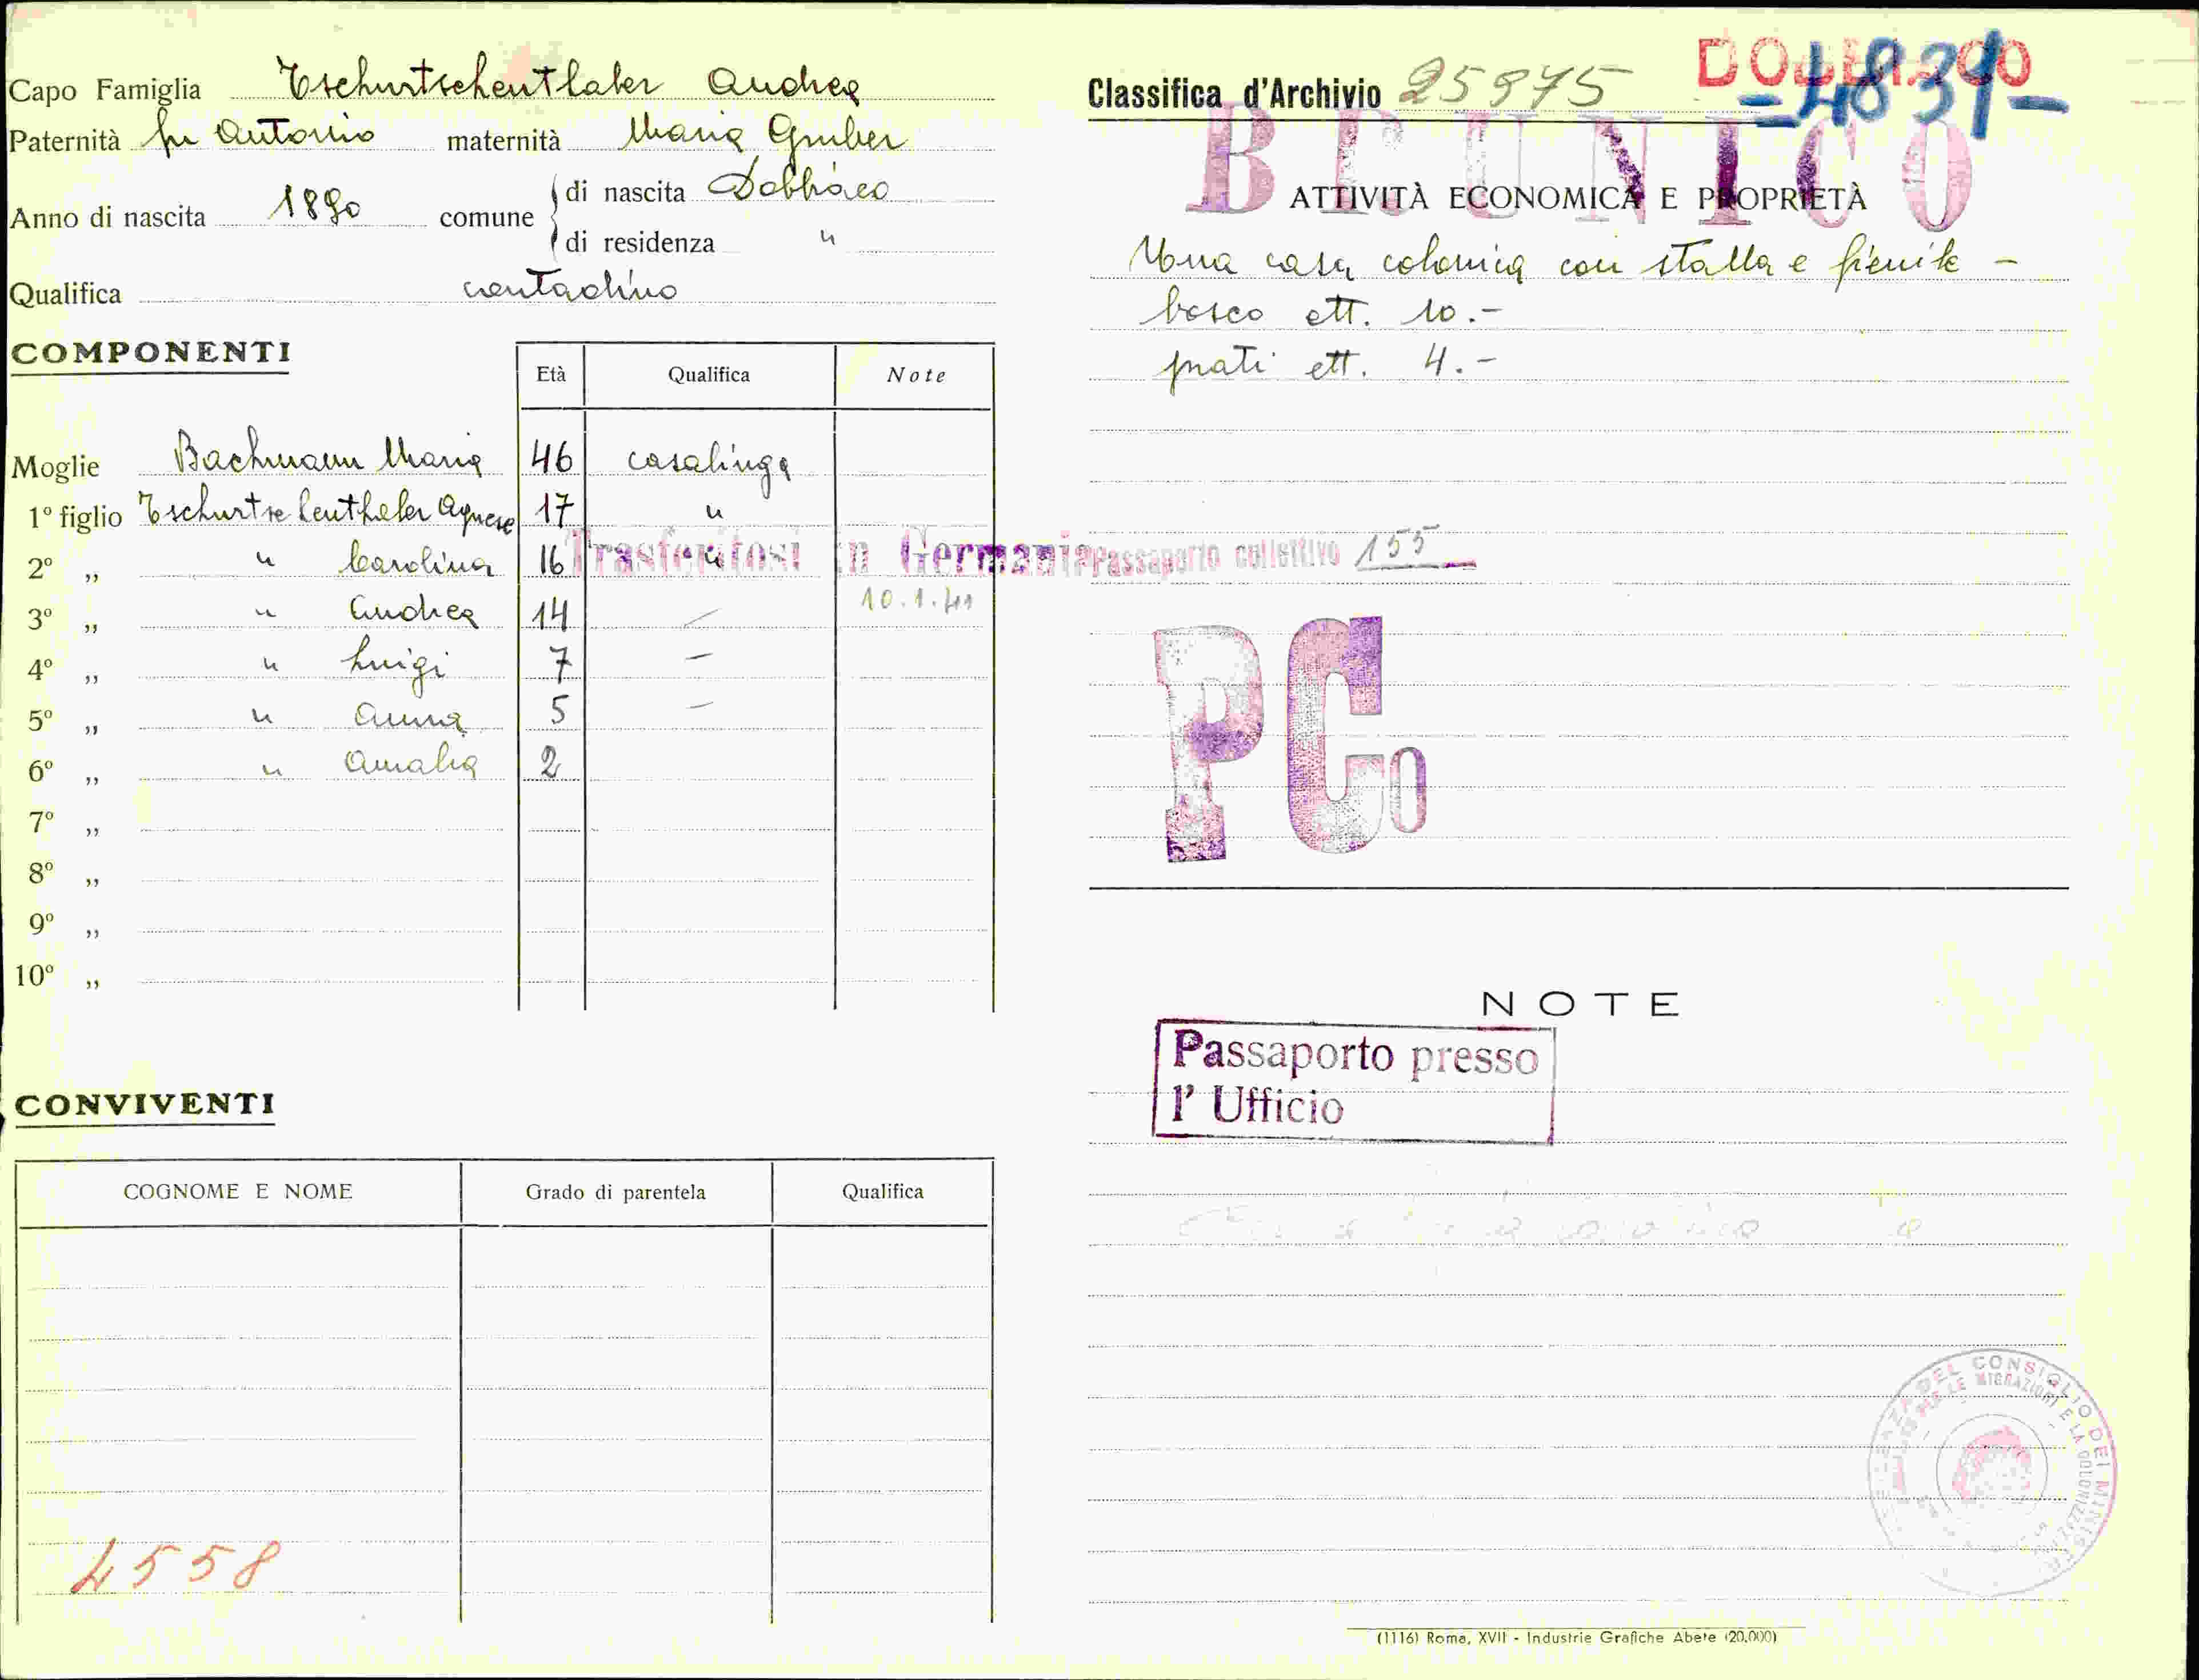 Capo Famiglia Tschurtschenthaler Andrea
Paternità fu Antonio maternità Maria Gruber
Anno di nascita 1890 comune di nascita Dobbiaco
di residenza "
Qualifica contadino
COMPONENTI
Età Qualifica Note
Moglie Bachmann Maria 46 casalinga
1º figlio Tschurtschenthaler Agnese 17 "
2º ,, " Carolina 16 "
Trasferitosi in Germania
3º ,, " Andrea 14 – 10.1.41
4º ,, " Luigi 7 –
5º ,, " Anna 5 –
6º ,, " Amalia 2
7º ,,
8º ,,
9º ,,
10º ,,
CONVIVENTI
COGNOME E NOME Grado di parentela Qualifica
4558
Classifica d'Archivio 25975
-4839-
BRUNICO
ATTIVITÀ ECONOMICA E PROPRIETÀ
Una casa colonica con stalla e fienile -
bosco ett. 10.-
prati ett. 4.-
Passaporto collettivo 155
PCo
NOTE
Passaporto presso
l' Ufficio
DEL CONSIGLIO DEI MINIS
LE MIGRAZIONI E LA COLONIZZ
(1116) Roma, XVII - Industrie Grafiche Abete (20.000)